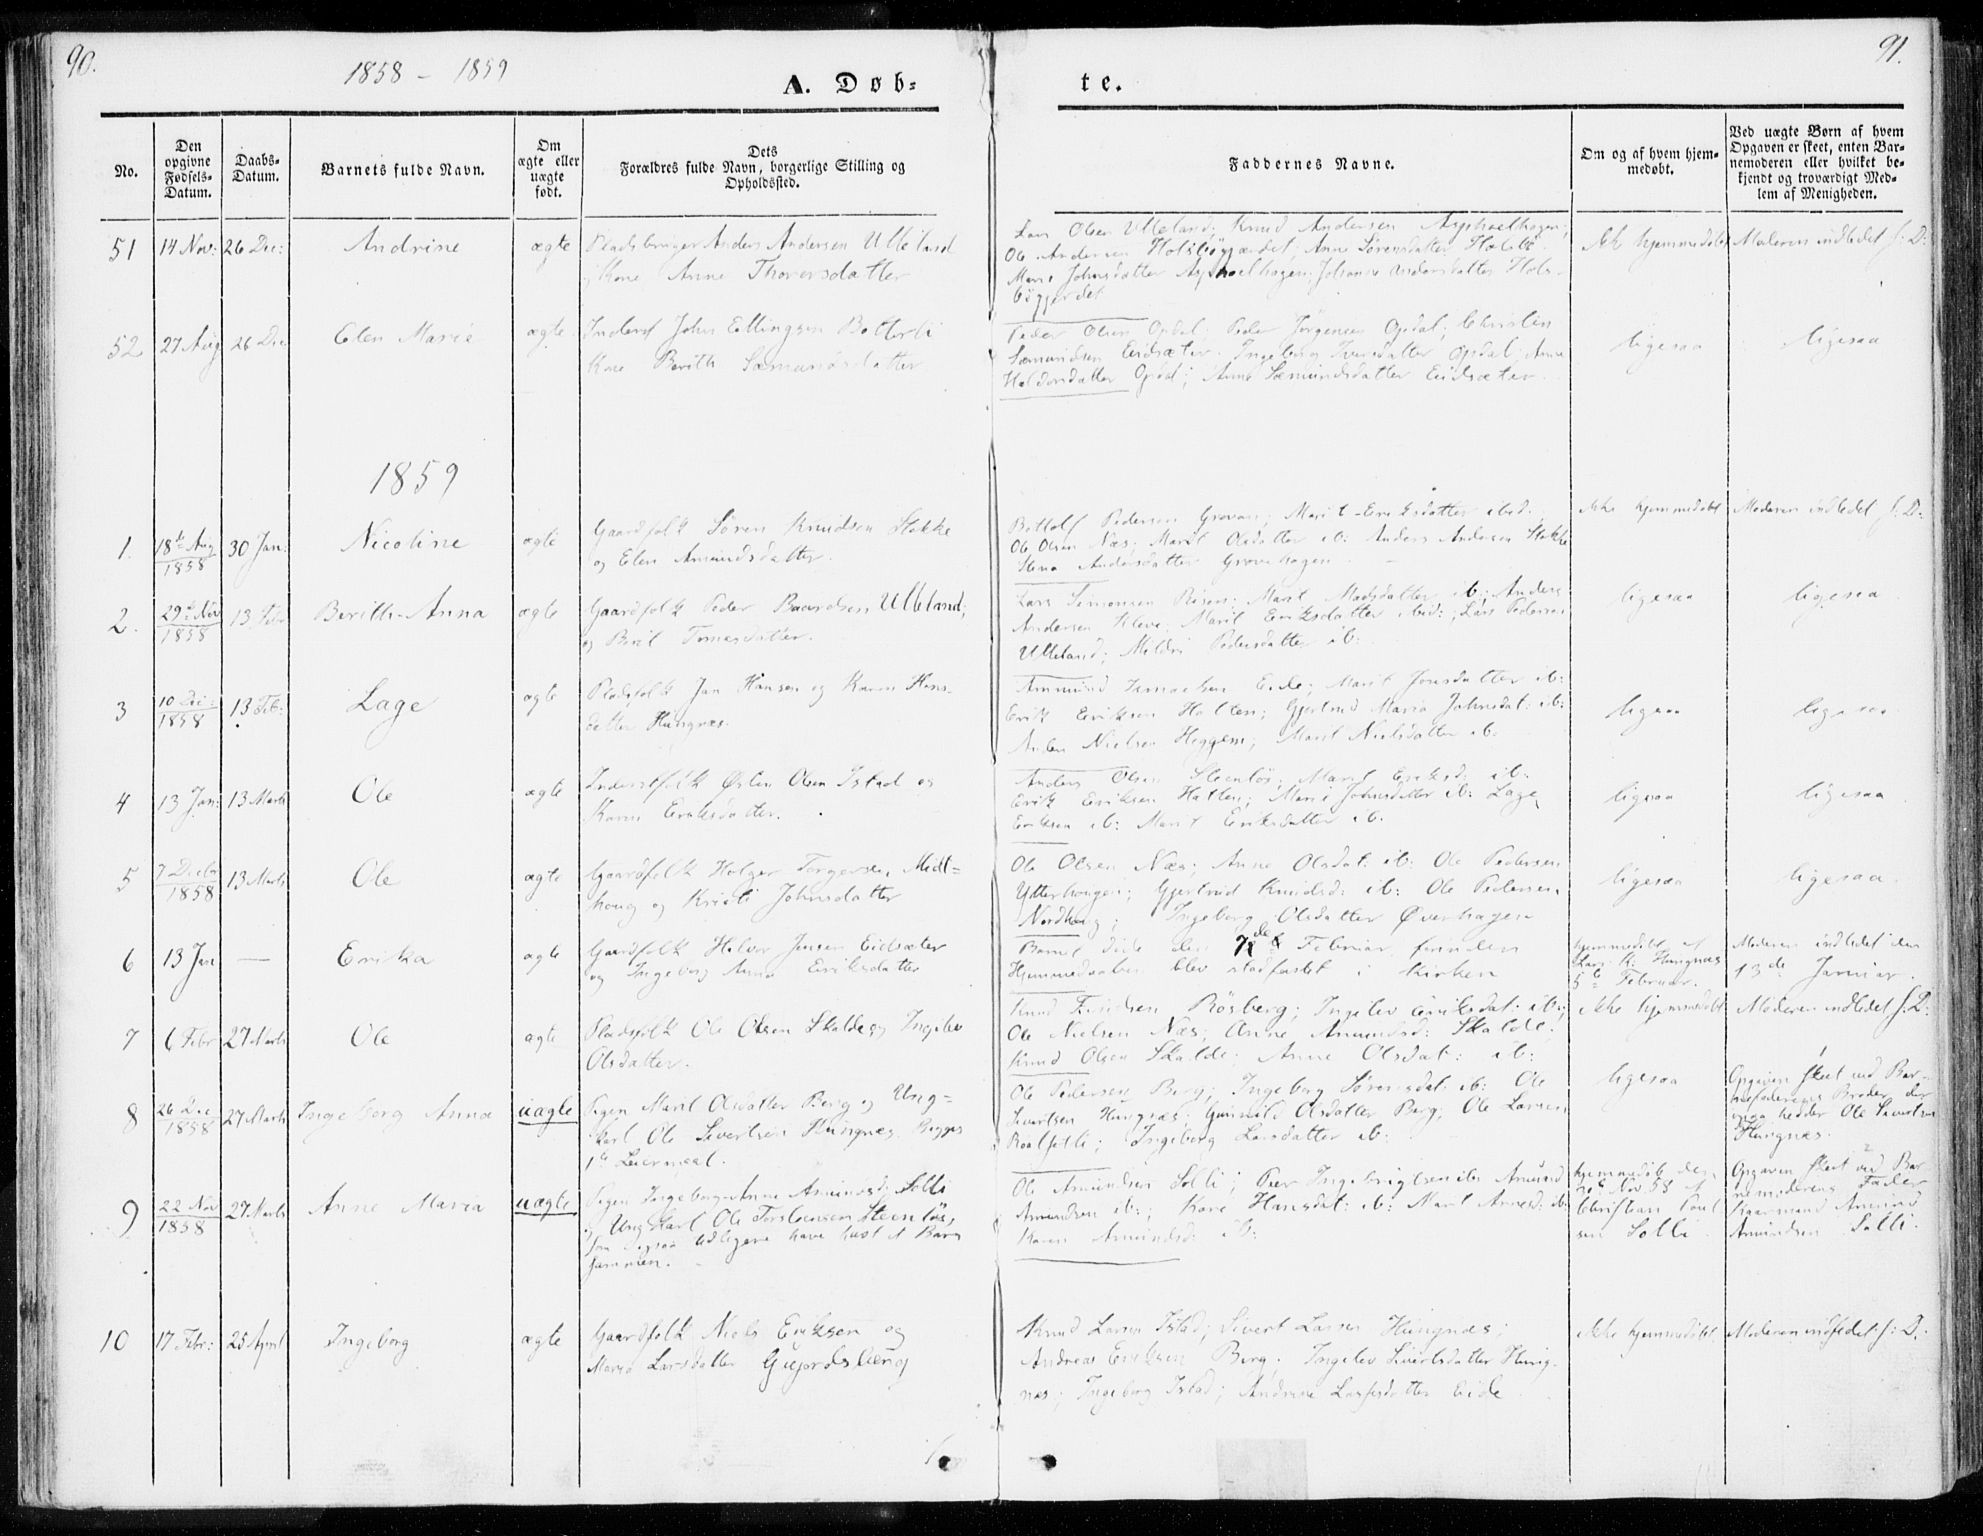 90.
1858 - 1859
A. Døb=
te.
91.
No.
Den opgivne Fødsels-Datum.
Daabs-Datum.
Barnets fulde Navn.
Om ægte eller uægte født.
Dets Forældres fulde Navn, borgerlige Stilling og Opholdssted.
Faddernes Navne.
Om og af hvem hjemmedøbt.
Ved uægte Børn af hvem Opgaven er skeet, enten Barnemoderen eller hvilket bekjendt og troværdigt Medlem af Menigheden.
51 14 Nov: 26 Dec: Andrine ægte Pladsbruger Anders Andersen Ulleland
Kone Anne Thorersdatter
Lars Olsen Ulleland; Knud Andersen Asphoelhagen;
Ole Andersen Holsbøgjærdet; Anne Sørensdatter
Marit Johnsdatter Asphoelhagen; Johanne Andersdatter Hols-
bøgjerdet
ikke hjemmedøbt Moderen indledet s: D:
52 27 Aug 26 Dec Elen Marie ægte Inderst John Ellingsen Bolterli
Kone Berith Sæmundsdatter
Peder Olsen Opdal; Peder Jørgensen Opdal; Christen
Sæmundsen Eidsæter. Ingeborg Iversdatter Opdal; Anne
Haldorsdatter Opdal; Anne Sæmundsdatter Eidsæter.
ligesaa ligesaa
1859
1. 18de Aug 1858 30 Jan: Nicoline ægte Gaardfolk Søren Knudsen Stokke
og Elen Amundsdatter.
Bottolf Pedersen Grovan; Marit Eriksdatter ibid:;
Ole Olsen Næs; Marit Olsdatter ib: Anders Andersen Stokke
Stena Andersdatter Grovehagen.
ikke hjemmedøbt Moderen indledet s: D:
2. 29de Nov 1858 13 Febr Berith-Anna ægte Gaardfolk Peder Baardsen Ulleland;
og Brit Tomasdatter.
Lars Simonsen Røsen; Marit Madsdatter ib:; Anders
Andersen Kleve; Marit Eriksdatter ibid:; Lars Pedersen
Ulleland; Mildri Pedersdatter ib:
ligesaa ligesaa
3 10 Dec: 1858 13 Feb: Lage ægte Pladsfolk Jon Hansen og Karen Hans-
datter Hungnæs.
Ammund Eide; Marit Jonsdatter ib:
Erik Eriksen Halten; Gjertrud Maria Johnsdat: ib:
Anders Nielsen Heggem; Marit Nielsdatter ib:
ligesaa ligesaa
4 13 Jan: 13 Marts Ole ægte Inderstfolk Østen Olsen Istad og
Karen Eriksdatter.
Anders Olsen Steenløs; Marit Eriksd: ib:
Erik Eriksen Halten; Marit Johnsdatter ib: Lage
Eriksen ib: Marit Eriksdatter ib.
ligesaa ligesaa
5 7 Decbr 1858 13 Marts Ole ægte Gaardfolk Holger Torgersen Midt=
houg og Kristi Johnsdatter
Ole Olsen Næs; Anne Olsdat: ib: Ole Pedersen
Ytterhougen; Gjertrud Knudsd: ib: Ole Pedersen
Nordhaug; Ingeborg Olsdatter Øverhagen
ligesaa ligesaa.
6 13 Jan — Erika ægte Gaardfolk Halvor Jensen Eidsæter
og Ingeborg Anna Eriksdatter
Barnet døde den 7de Februar, førinden
Hjemmedaaben blev stadfæstet i Kirken
hjemmedøbt af
Lars K: Hungnæs
5te Februar.
Moderen indledet den
13de Januar.
7 6 Febr 27 Marts Ole ægte Pladsfolk Ole Olsen Skalde og Ingelev
Olsdatter.
Knud Røsberg; Ingelev Eriksdat: ib:;
Ole Nielsen Næs; Anne Amundsd: Skalde;
Knud Olsen Skalde; Anne Olsdat: ib:
ikke hjemmedøbt Moderen indledet s: D:
8 26 Dec 1858 27 Marts Ingeborg Anna uægte Pigen Marit Olsdatter Berg og Ung=
karl Ole Sivertsen Hungnæs. Begges
1ste Leiermaal.
Ole Pedersen Berg; Ingeborg Sørensdat: ib: Ole
Sivertsen Hungnæs; Gunnild Olsdatter Berg; Ole Larsen
Roalfsetli; Ingeborg Larsdatter ib:
ligesaa
Opgaven skeet ved Bar-
nefaderens Broder der
ogsaa hedder Ole Sivertsen
Hungnæs.
9 22 Nov 1858 27 Marts Anne Maria uægte Pigen Ingeborg-Anne Amundsd: Solli
og Ungkarl Ole Torstensen Steenløs,
som ogsaa tidligere have havt et Barn
sammen.
Ole Amundsen Solli; Peer Ingebrigtsen ib: Amund
Amundsen ib:; Kari Hansdat: ib: Marit Arnesd: ib:
Karen Amundsd: ib:
hjemmedøbt den
Nov 58 af
Christian Poul-
sen Solli
Opgaven skeet ved Bar-
nemoderens Fader
Kaarmand Amund
Amundsen Solli.
10 17 Febr: 25 April Ingeborg ægte Gaardfolk Niels Eriksen og
Marit Larsdatter Gujordsberg
Knud Larsen Istad; Sivert Larsen Hungnæs;
Andreas Eriksen Berg; Ingelev Sivertsdatter Hung-
næs; Ingeborg Istad; Andrine Lassesdatter Eide
ikke hjemmedøbt. Moderen indledet s: D.: